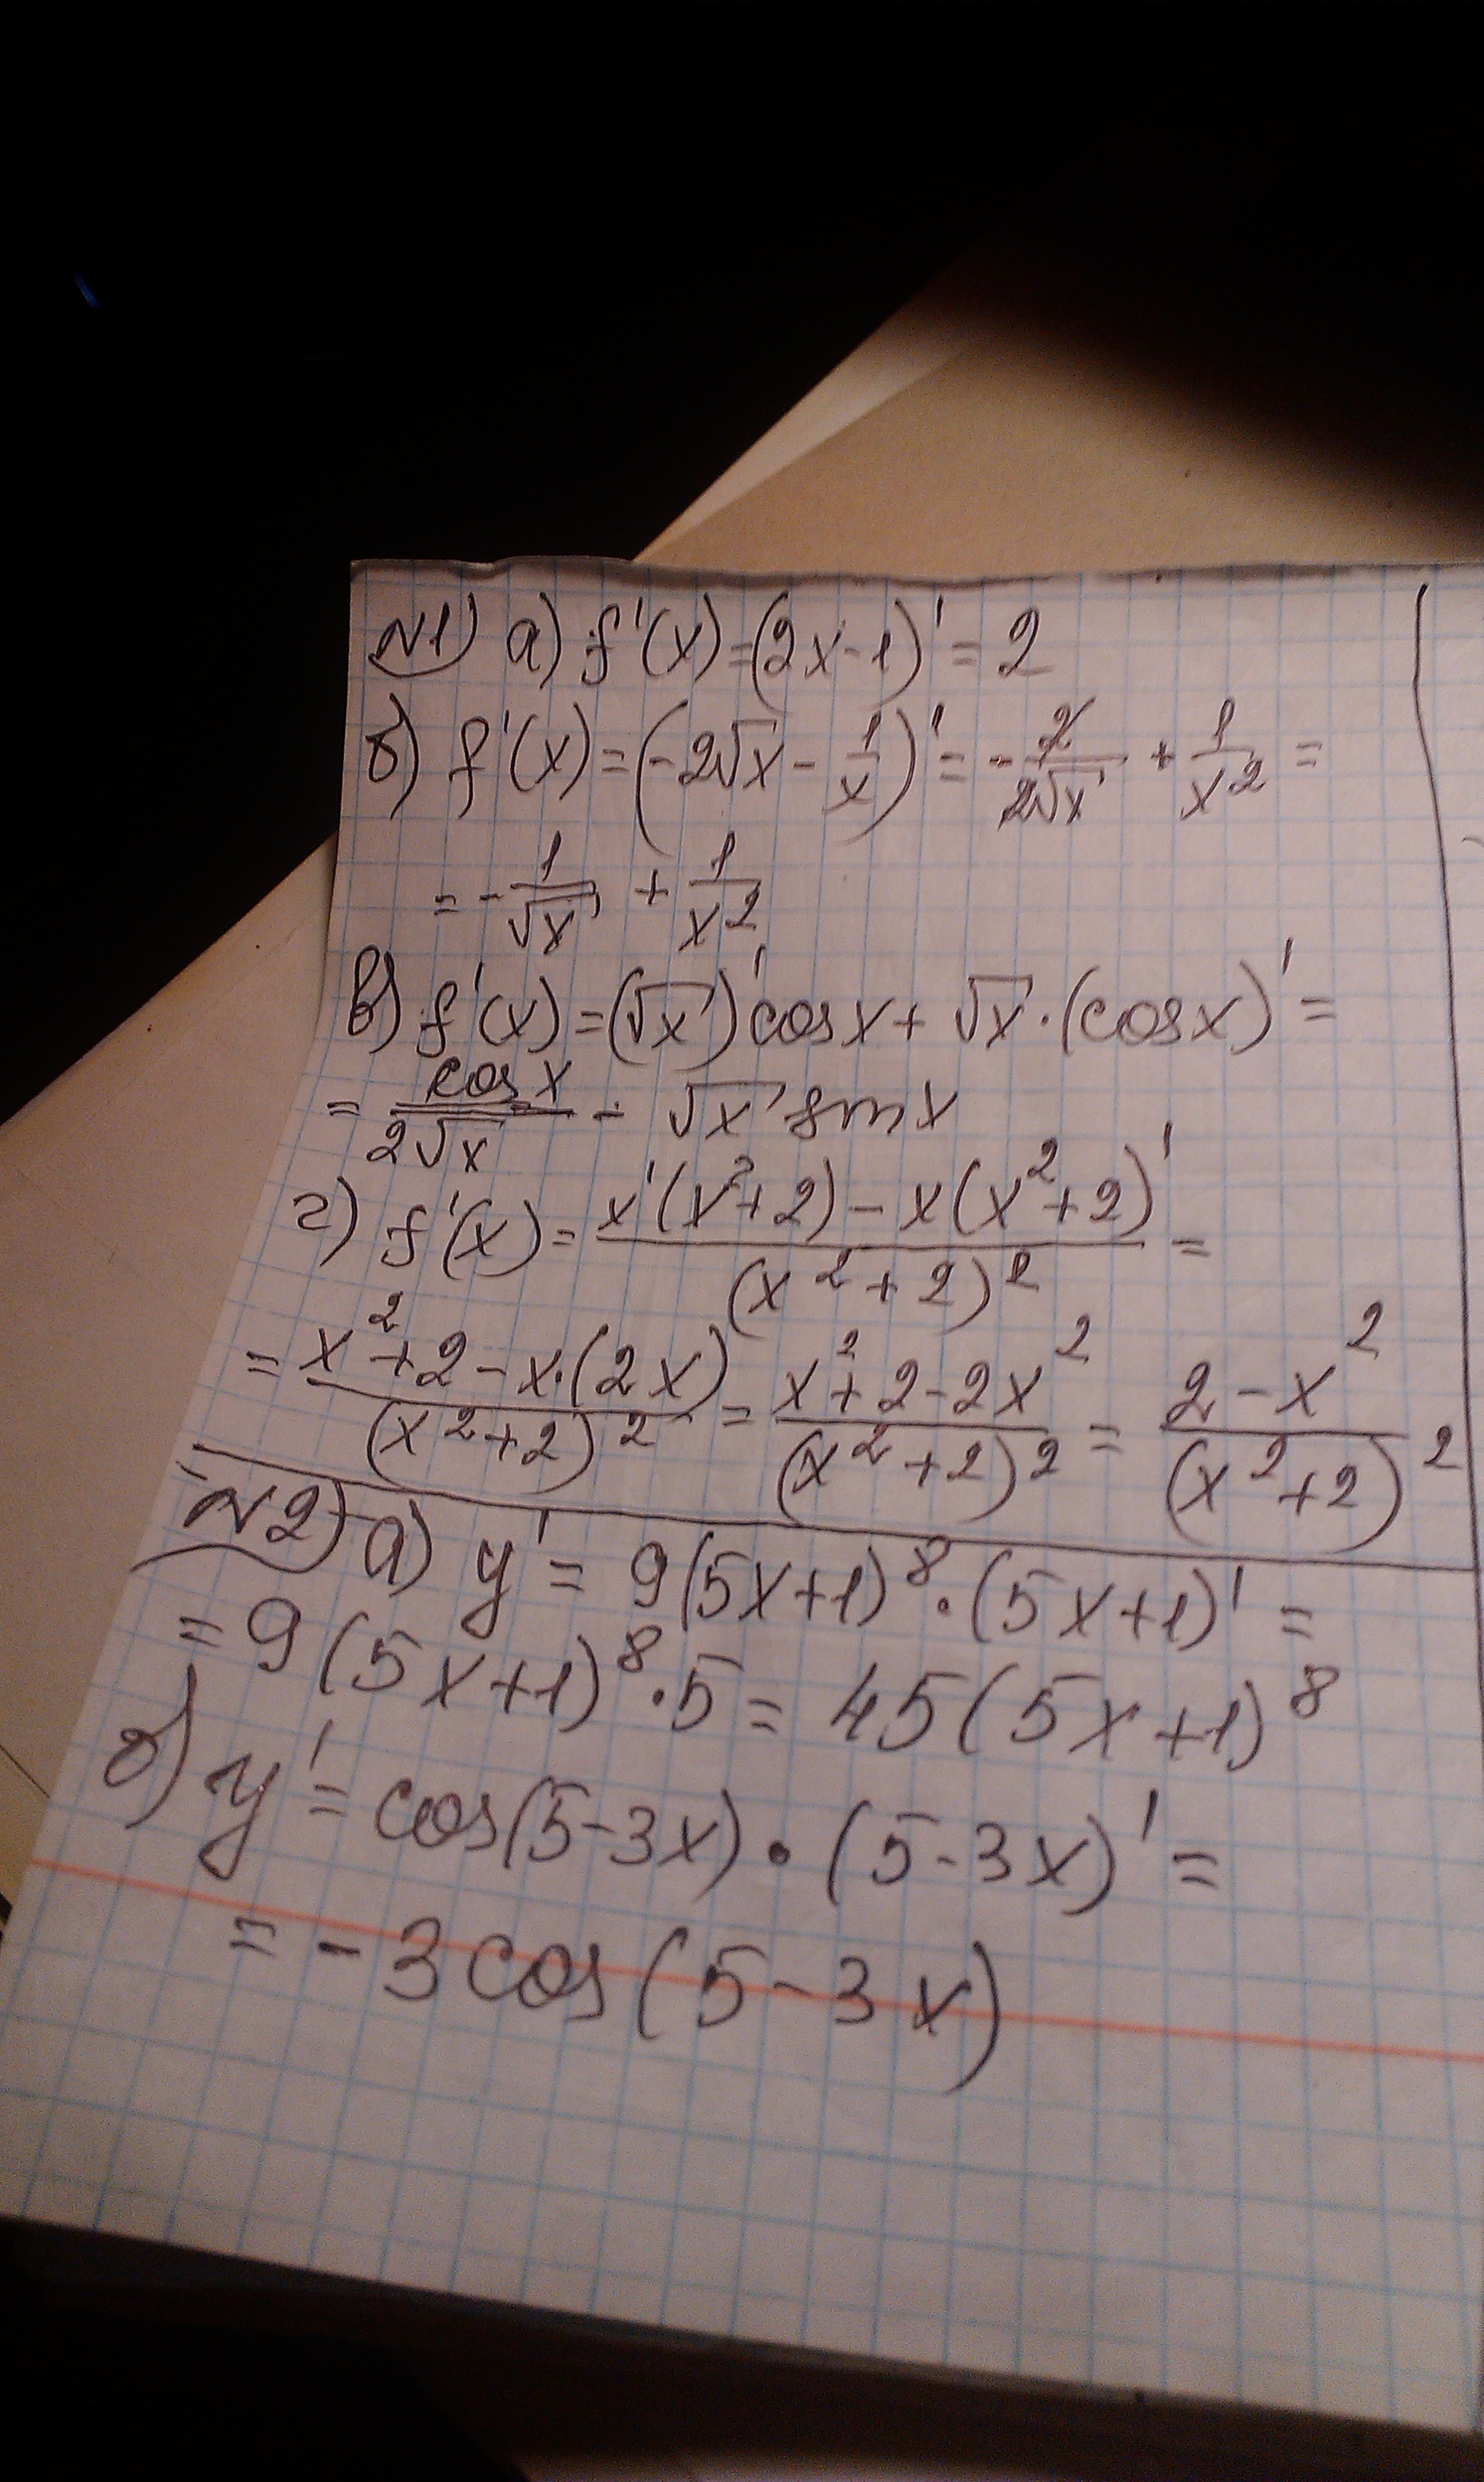 №1) а) f'(x)=(2x-1)'=2
б) f'(x)=(-2√x - 1/x)' = -2/(2√x) + 1/x² =
= -1/√x + 1/x²
в) f'(x)=(√x)'cosx+√x·(cosx)'=
= cosx/(2√x) - √x sinx
г) f'(x)= (x'(x²+2)-x(x²+2)')/(x²+2)² =
= (x²+2-x·(2x))/(x²+2)² = (x²+2-2x²)/(x²+2)² = (2-x²)/(x²+2)²
№2) а) y'=9(5x+1)⁸·(5x+1)'=
=9(5x+1)⁸·5=45(5x+1)⁸
б) y'=cos(5-3x)·(5-3x)'=
=-3cos(5-3x)